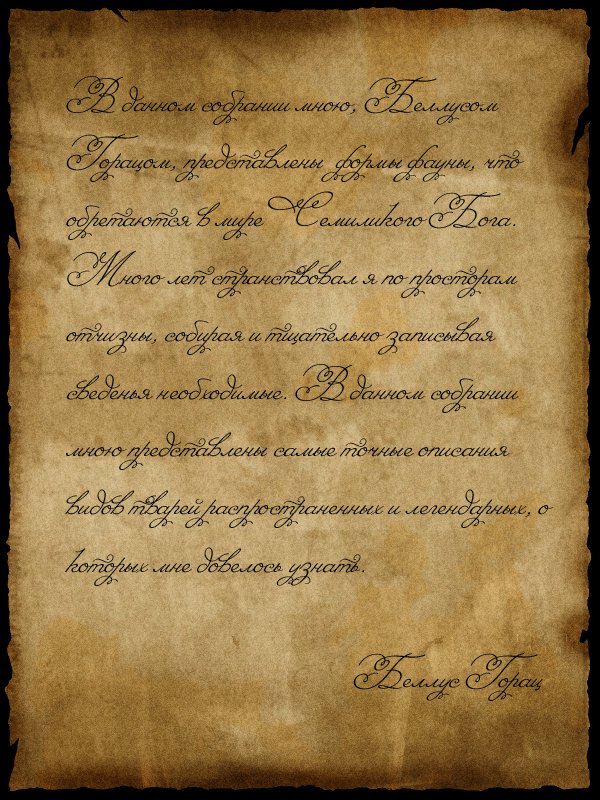 В данном собрании мною, Беллусом
Горацом, представлены формы фауны, что
обретаются в мире Семиликого Бога.
Много лет странствовал я по просторам
отчизны, собирая и тщательно записывая
сведенья необходимые. В данном собрании
мною представлены самые точные описания
видов тварей распространенных и легендарных, о
которых мне довелось узнать.
Беллус Горац